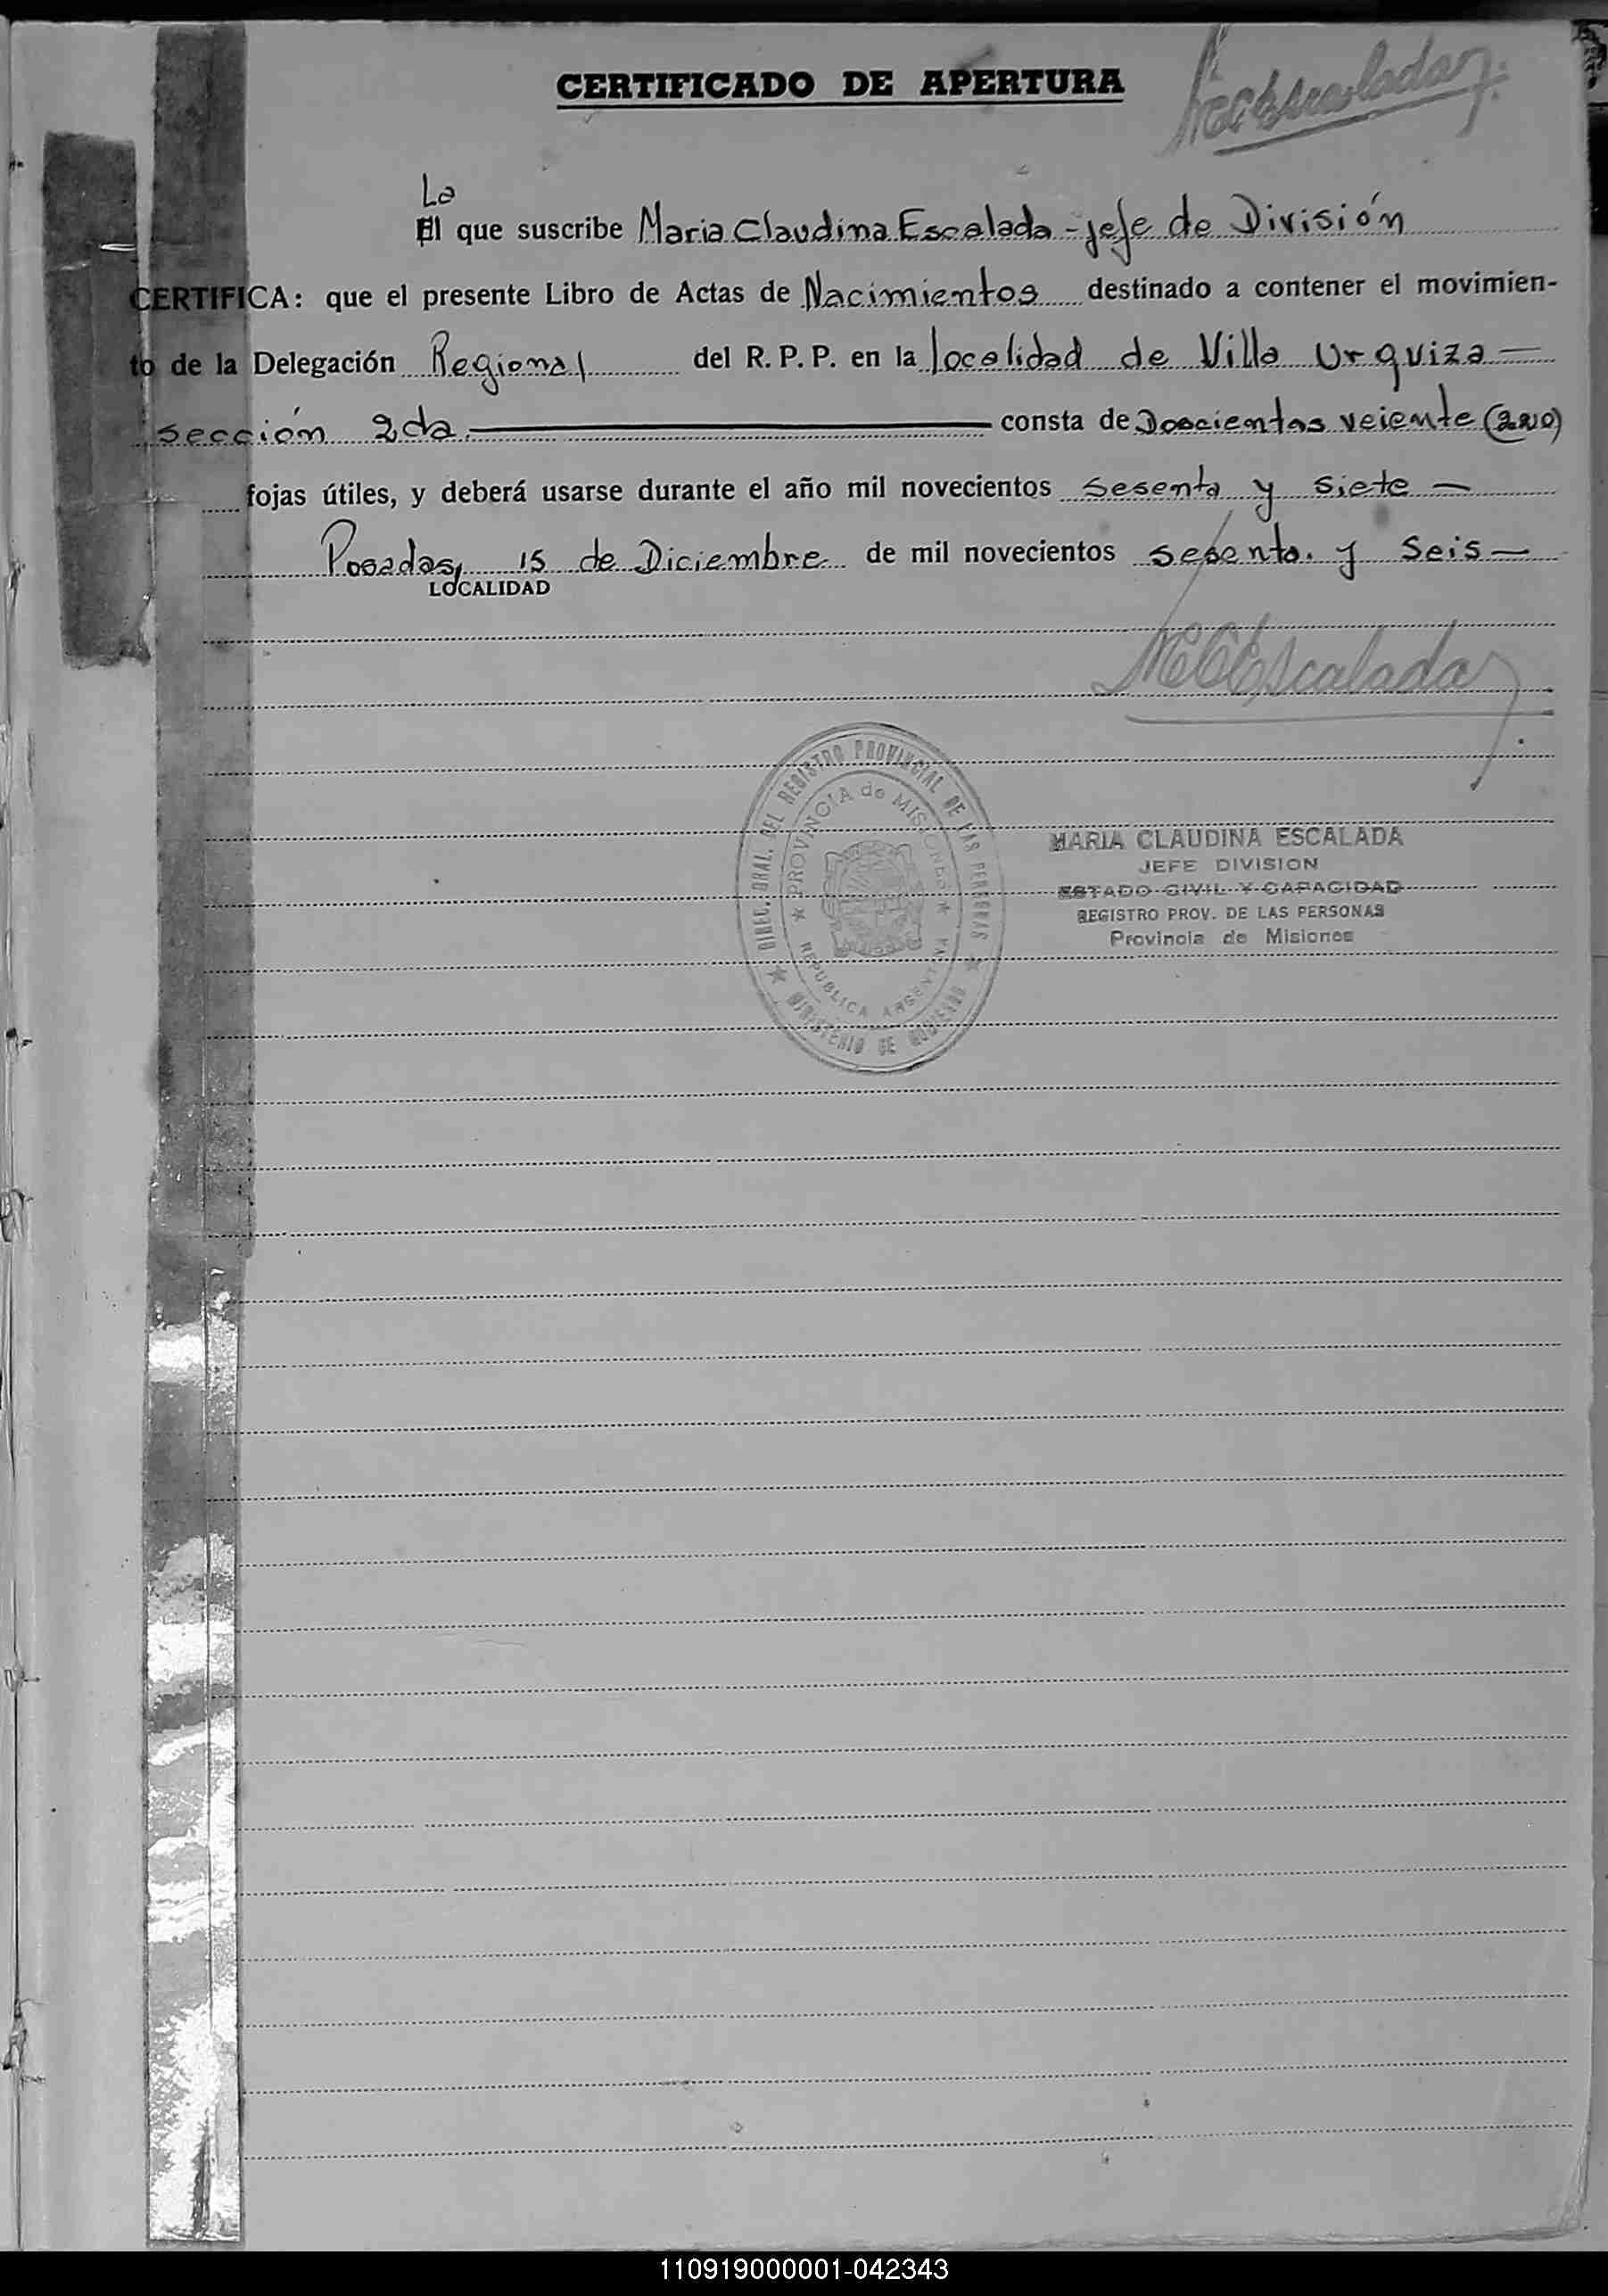 CERTIFICADO DE APERTURA
La
El que suscribe Maria Claudina Escalada - jefe de División
CERTIFICA: que el presente Libro de Actas de Nacimientos destinado a contener el movimien-
to de la Delegación Regional del R. P. P. en la localidad de Villa Urquiza —
sección 2da. — consta de Doscientas veiente (220)
fojas útiles, y deberá usarse durante el año mil novecientos sesenta y siete —
Posadas, 15 de Diciembre de mil novecientos sesenta y seis —
LOCALIDAD
MCEscalada
DIREC. GRAL. DEL REGISTRO PROVINCIAL DE LAS PERSONAS
PROVINCIA de MISIONES
REPUBLICA ARGENTINA
MINISTERIO DE GOBIERNO
MARIA CLAUDINA ESCALADA
JEFE DIVISION
ESTADO CIVIL Y CAPACIDAD
REGISTRO PROV. DE LAS PERSONAS
Provincia de Misiones
110919000001-042343